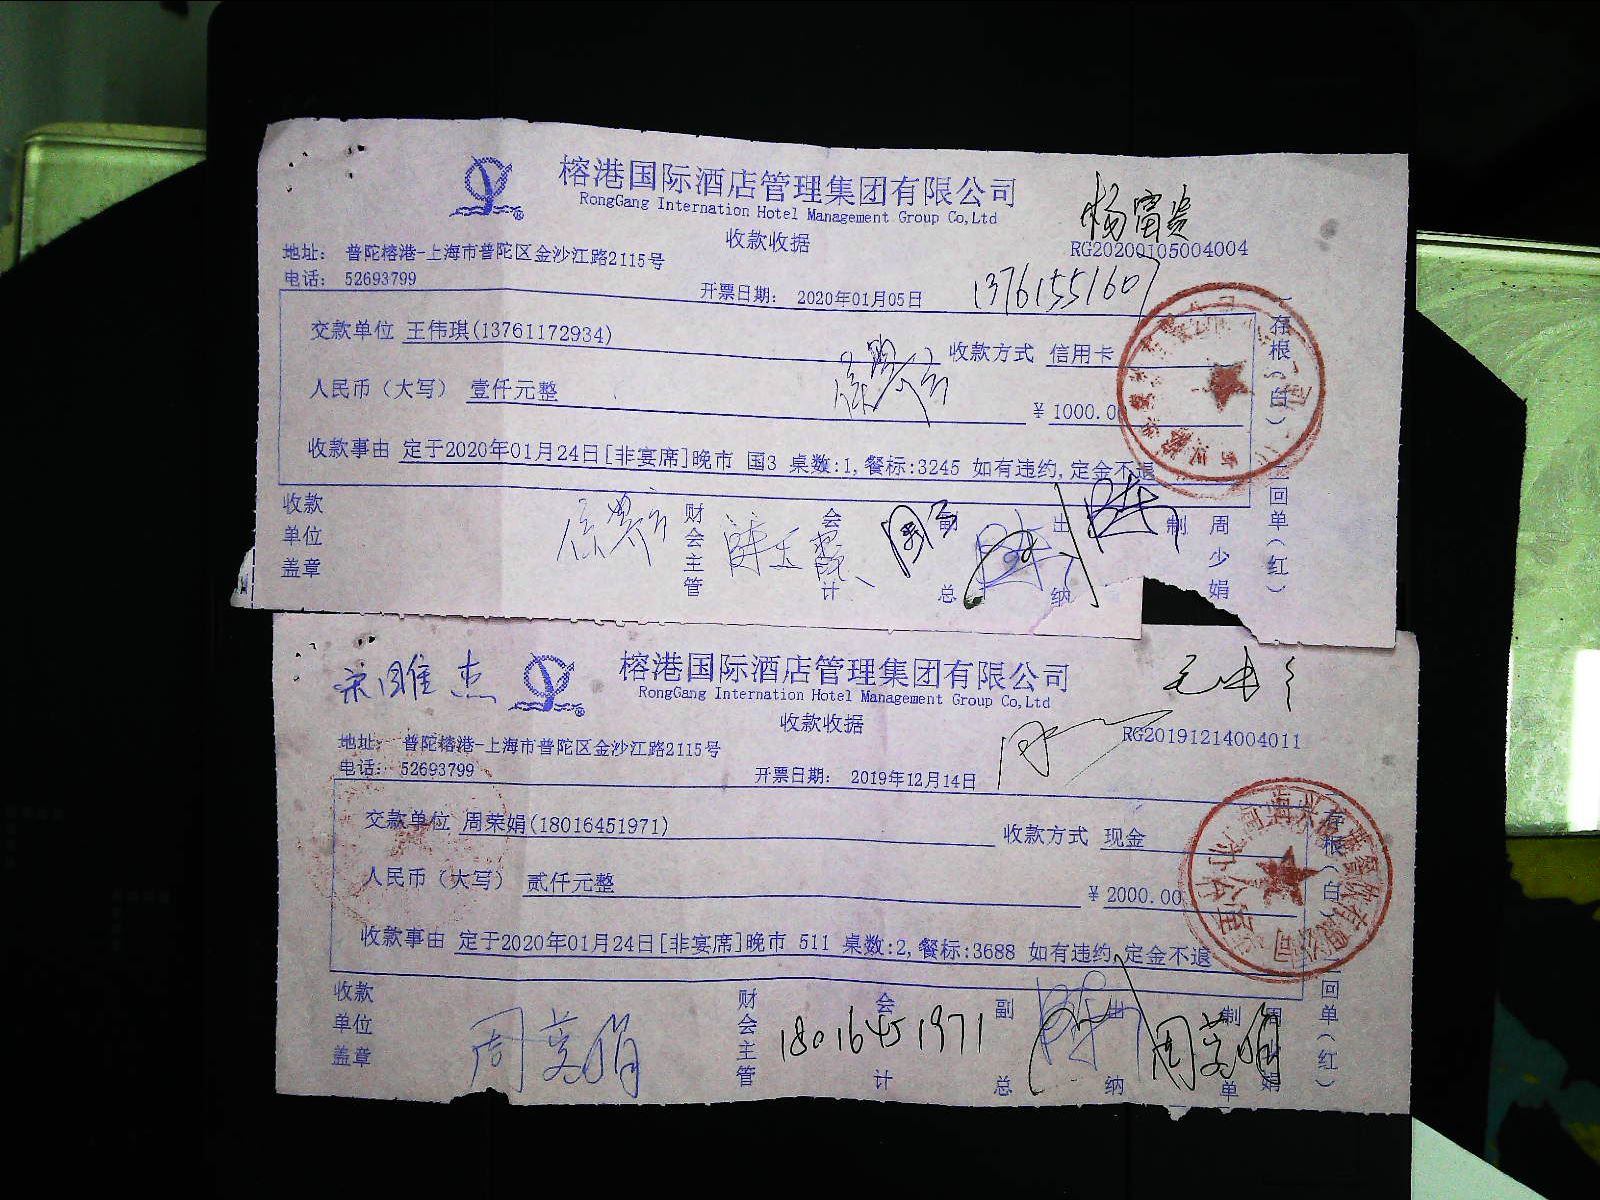 榕港国际酒店管理集团有限公司
RongGang Internation Hotel Management Group Co,Ltd
收款收据
杨富贵
RG20200105004004
地址： 普陀榕港-上海市普陀区金沙江路2115号
电话： 52693799
开票日期： 2020年01月05日
13761551607
交款单位 王伟琪(13761172934)
收款方式 信用卡
人民币（大写） 壹仟元整
¥ 1000.0
收款事由 定于2020年01月24日[非宴席]晚市 国3 桌数:1,餐标:3245 如有违约,定金不退
存根（白）
二回单（红）
收款单位盖章
财会主管
会计
副总
出纳
制
周少娟
宋雎杰
榕港国际酒店管理集团有限公司
RongGang Internation Hotel Management Group Co,Ltd
收款收据
RG20191214004011
地址： 普陀榕港-上海市普陀区金沙江路2115号
电话： 52693799
开票日期： 2019年12月14日
交款单位 周荣娟(18016451971)
收款方式 现金
人民币（大写） 贰仟元整
¥ 2000.00
收款事由 定于2020年01月24日[非宴席]晚市 511 桌数:2,餐标:3688 如有违约,定金不退
存根（白）
二回单（红）
收款单位盖章
周荣娟
财会主管
会计
18016451971
副总
出纳
制单
周荣娟